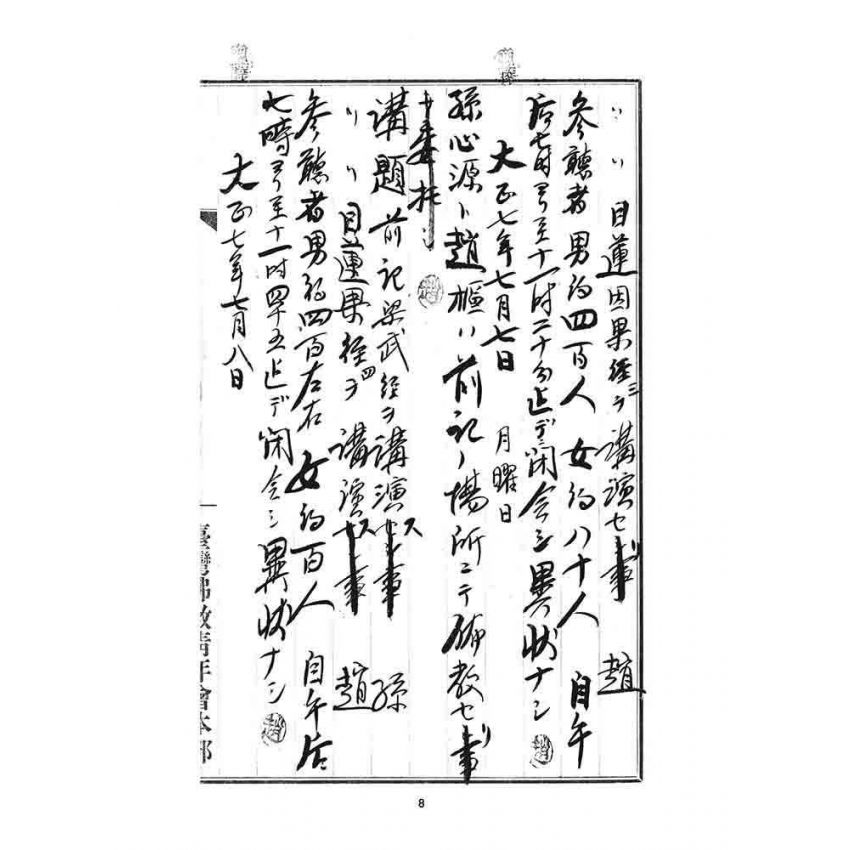 〃 〃 目蓮因果經三ヲ講演セリ事 趙
參聽者男約四百人 女約八十人 自午
后七时ヨリ至十一时二十分迄デ閉会シ異狀ナシ
大正七年七月七日 月曜日
孫心源ト趙樞ハ前記ノ場所ニテ佈教セリ事
委托
講題 前記梁武經ヲ講演ス 事 孫
〃 〃 目蓮果經四ヲ講演ス 事 趙
參聽者男約四百左右 女約百人 自午后
七時ヨリ至十一时四十五迄デ閉会シ異狀ナシ
大正七年七月八日
臺灣佛教青年會本部
8